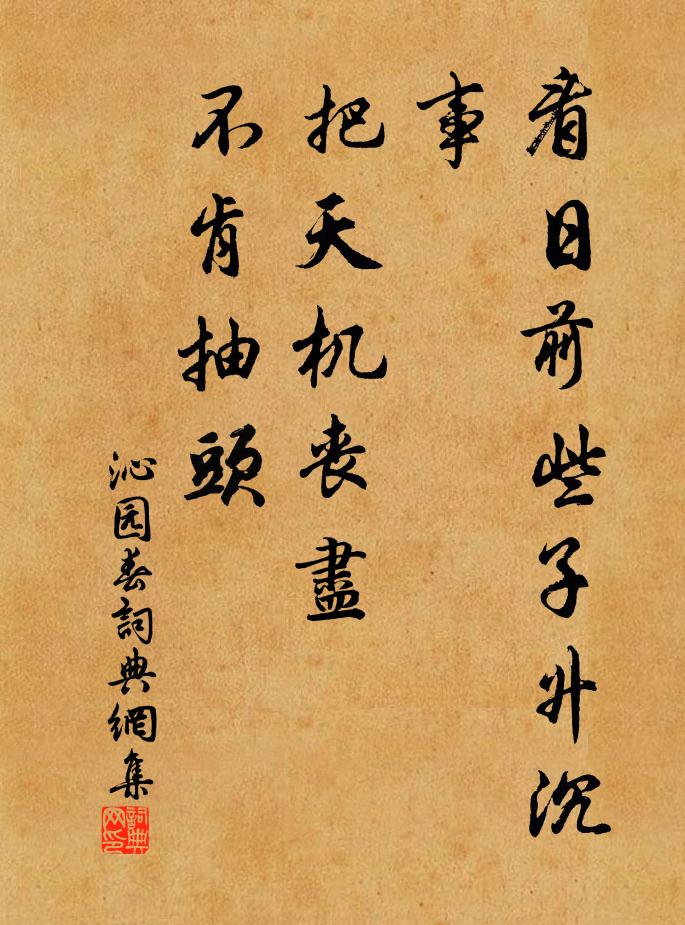 看日前些子升沉
事
把天机丧盡
不肯抽頭
沁园春詞典網集
詞典
网印